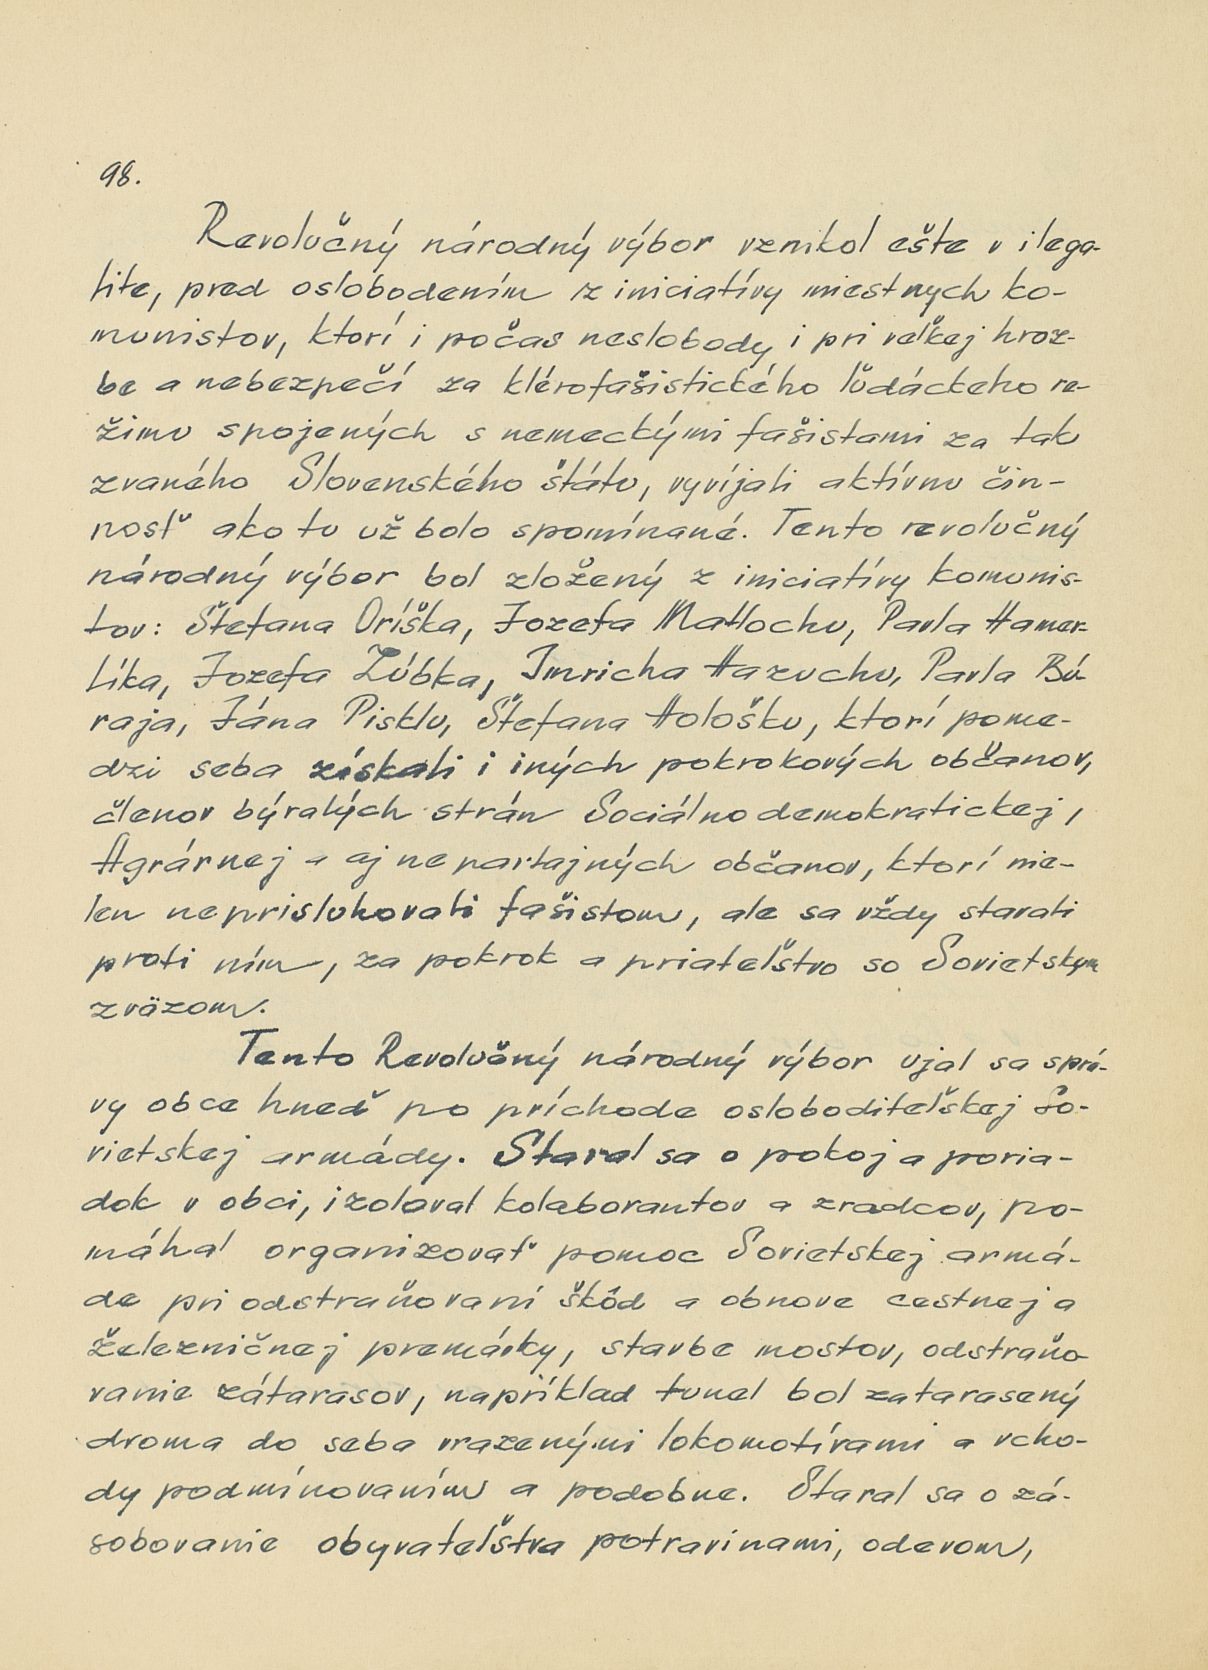 98.
Revolučný národný výbor vznikol ešte v ilega-
lite, pred oslobodením z iniciatívy miestnych ko-
munistov, ktorí i počas neslobody i pri veľkej hroz-
be a nebezpečí za klérofašistického ľudáckeho re-
žimu spojených s nemeckými fašistami za tak
zvaného Slovenského štátu, vyvíjali aktívnu čin-
nosť ako tu už bolo spomínané. Tento revolučný
národný výbor bol zložený z iniciatívy komunis-
tov: Štefana Oríška, Jozefa Matlochu, Pavla Hamer-
líka, Jozefa Zúbka, Imricha Hazuchu, Pavla Bú-
raja, Jána Pisklu, Štefana Hološku, ktorí pome-
dzi seba získali i iných pokrokových občanov,
členov bývalých strán Sociálnodemokratickej,
Agrárnej a aj nepartajných občanov, ktorí nie-
len neprisluhovali fašistom, ale sa vždy stavali
proti ním, za pokrok a priateľstvo so Sovietskym
zväzom.
Tento Revolučný národný výbor ujal sa sprá-
vy obce hneď po príchode osloboditeľskej So-
vietskej armády. Staral sa o pokoj a poria-
dok v obci, izoloval kolaborantov a zradcov, po-
máhal organizovať pomoc Sovietskej armá-
de pri odstraňovaní škôd a obnove cestnej a
železničnej premávky, stavbe mostov, odstraňo-
vanie zátarasov, napríklad tunel bol zatarasený
dvoma do seba vrazenými lokomotívami a vcho-
dy podmínovaním a podobne. Staral sa o zá-
sobovanie obyvateľstva potravinami, odevom,